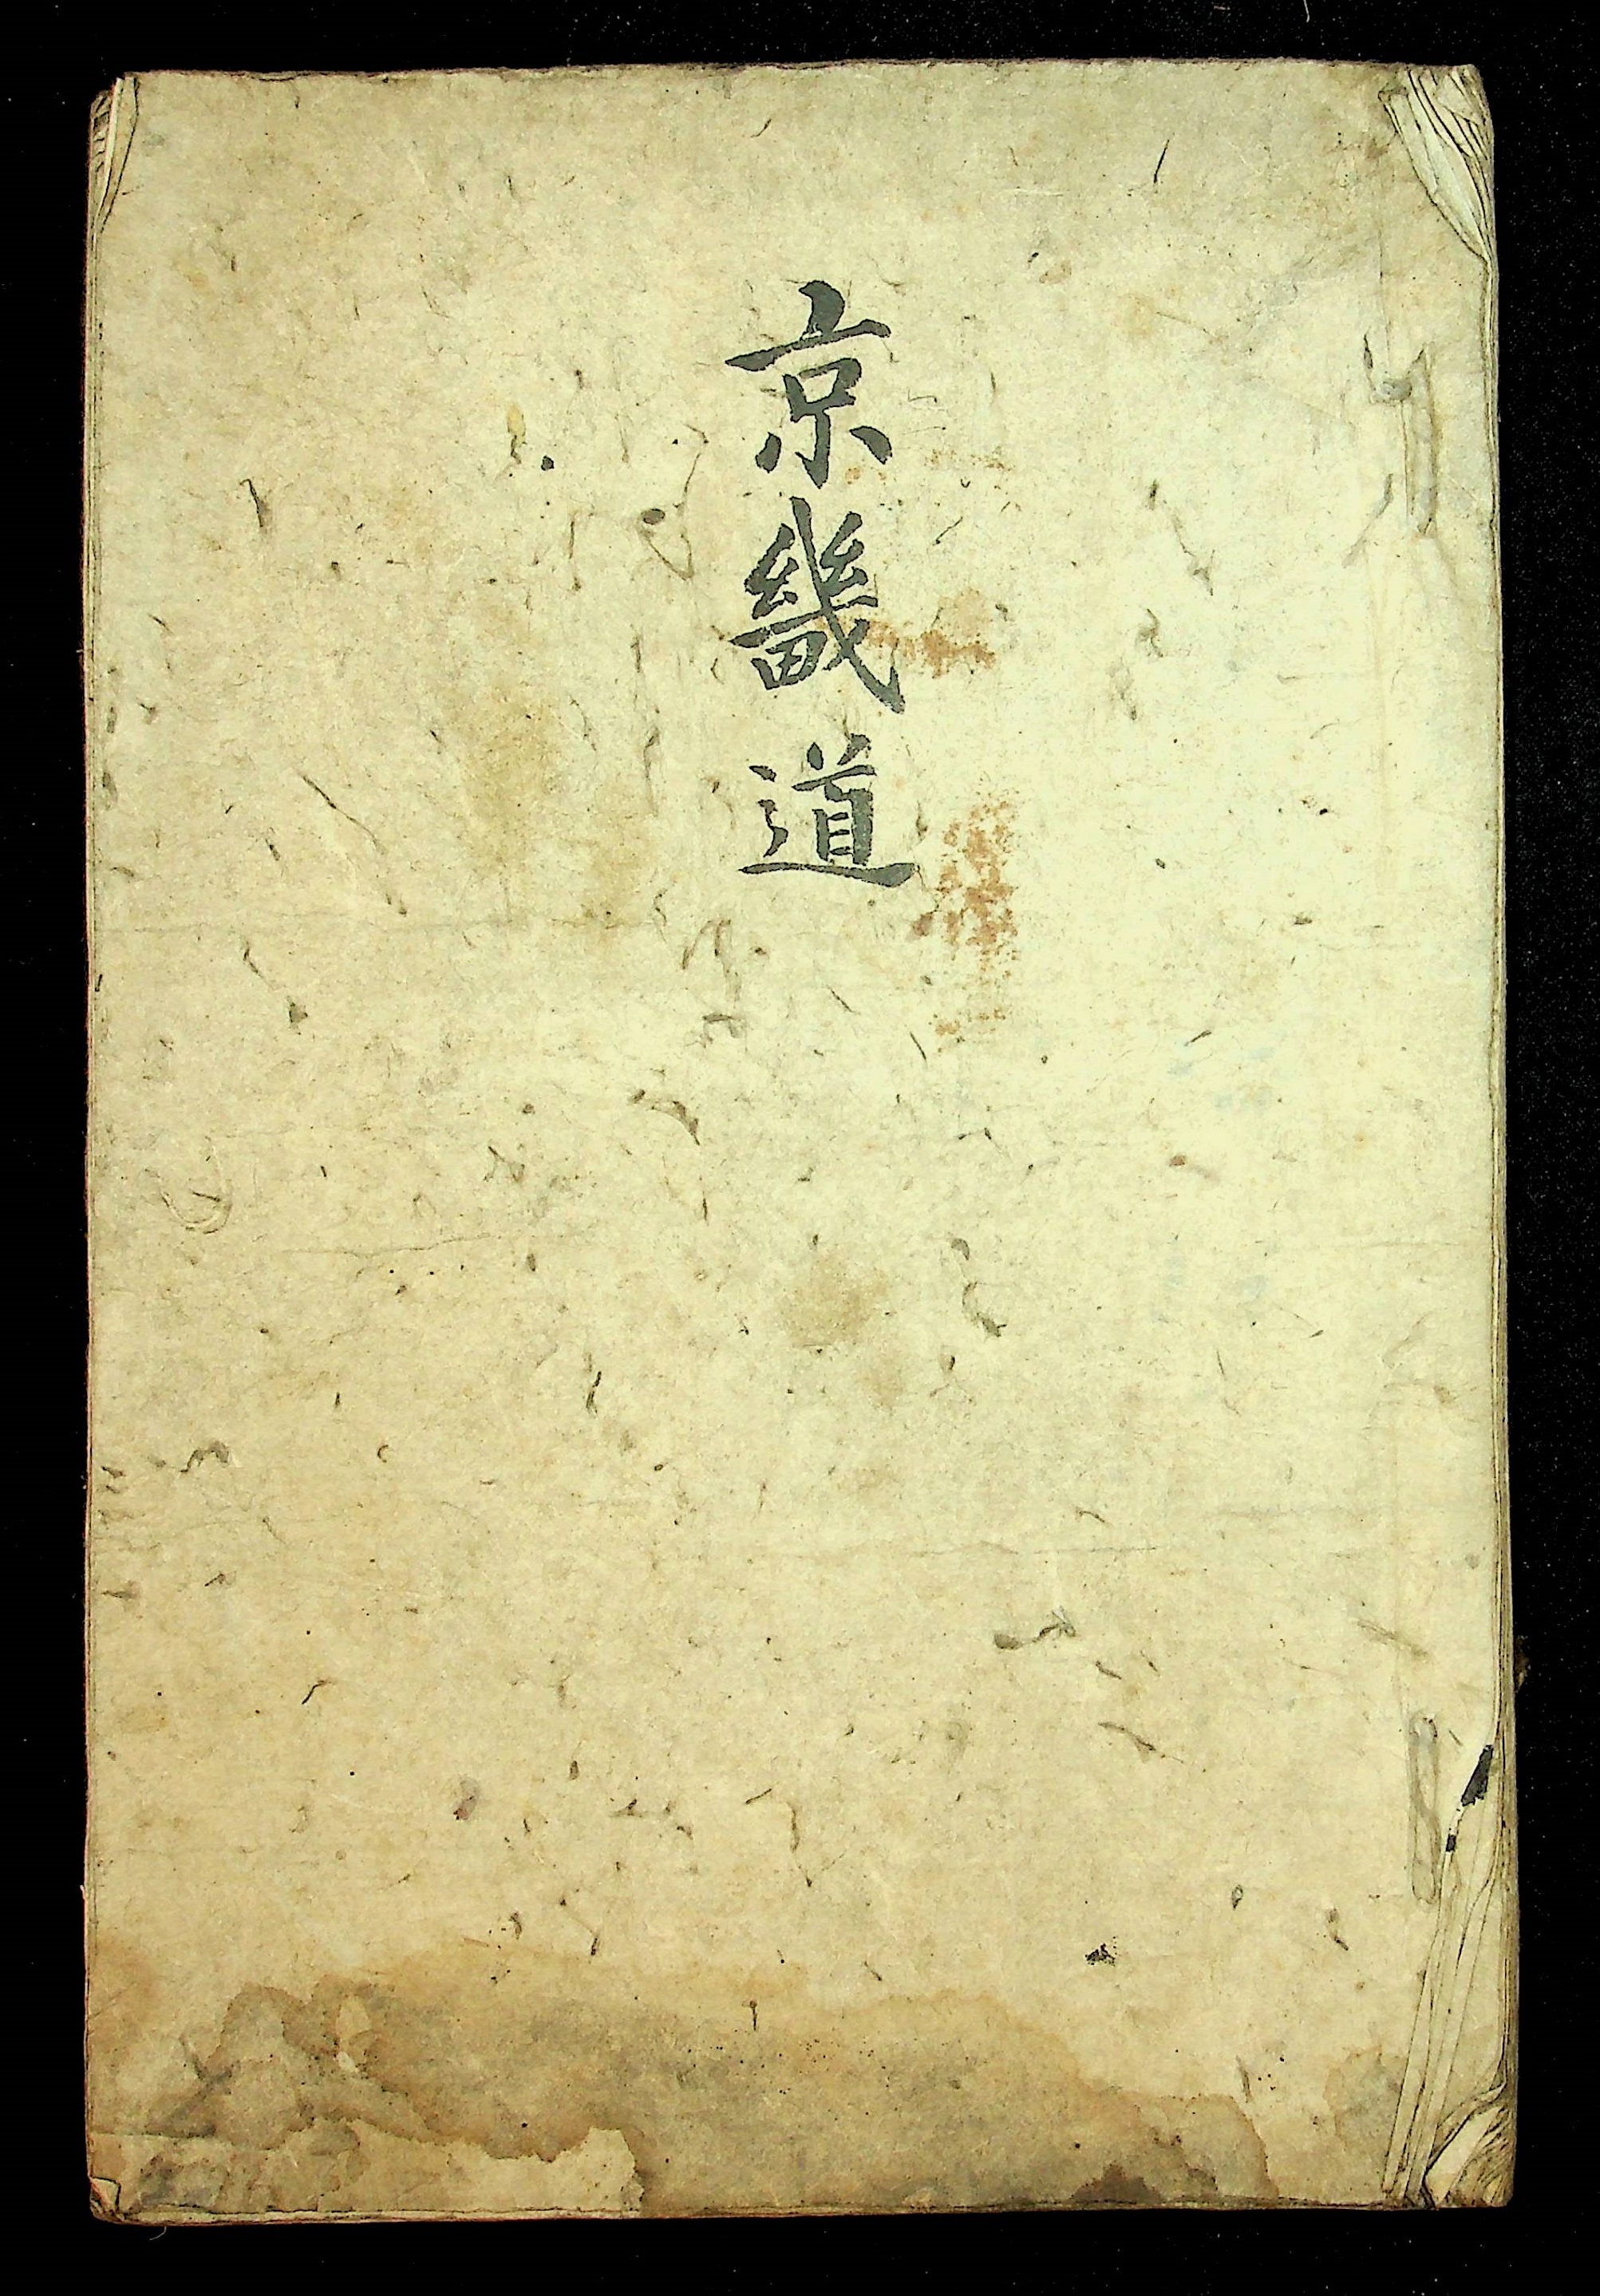 京畿道